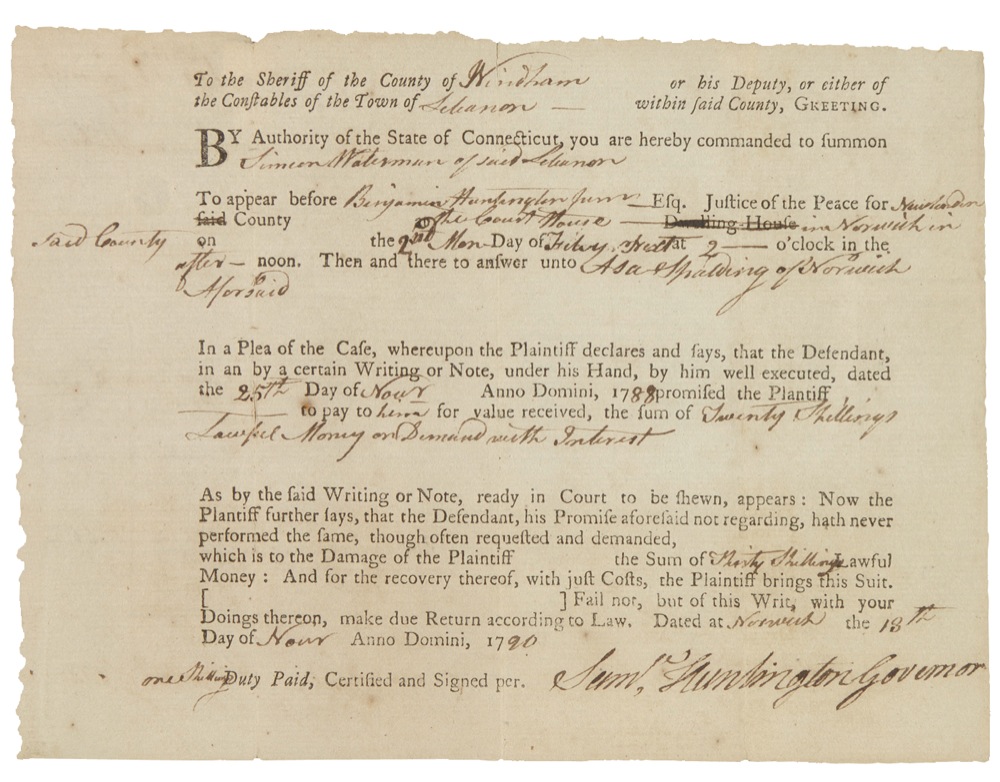 To the Sheriff of the County of Windham or his Deputy, or either of
the Conſtables of the Town of Lebanon — within ſaid County, GREETING.
BY Authority of the State of Connecticut, you are hereby commanded to ſummon
Simeon Waterman of said Lebanon
To appear before Benjamin Huntington Junr — Esq. Juſtice of the Peace for New London
ſaid County at the Court House — Dwelling-Houſe in Norwich in
said County on the 2nd Mon-Day of Feby. Next at 2 — o'clock in the
after — noon. Then and there to anſwer unto Asa Spalding of Norwich
Aforsaid
In a Plea of the Caſe, whereupon the Plaintiff declares and ſays, that the Defendant,
in an by a certain Writing or Note, under his Hand, by him well executed, dated
the 25th Day of Novr Anno Domini, 1788 promiſed the Plaintiff
to pay to him for value received, the ſum of Twenty Shillings
Lawful Money on Demand with Interest
As by the ſaid Writing or Note, ready in Court to be ſhewn, appears : Now the
Plantiff further ſays, that the Defendant, his Promiſe aforeſaid not regarding, hath never
performed the ſame, though often requeſted and demanded,
which is to the Damage of the Plaintiff the Sum of Thirty Shillings Lawful
Money : And for the recovery thereof, with juſt Coſts, the Plaintiff brings this Suit.
[ ] Fail not, but of this Writ, with your
Doings thereon, make due Return according to Law. Dated at Norwich the 13th
Day of Novr Anno Domini, 1790
one Shilling Duty Paid, Certified and Signed per. Saml. Huntington Governor